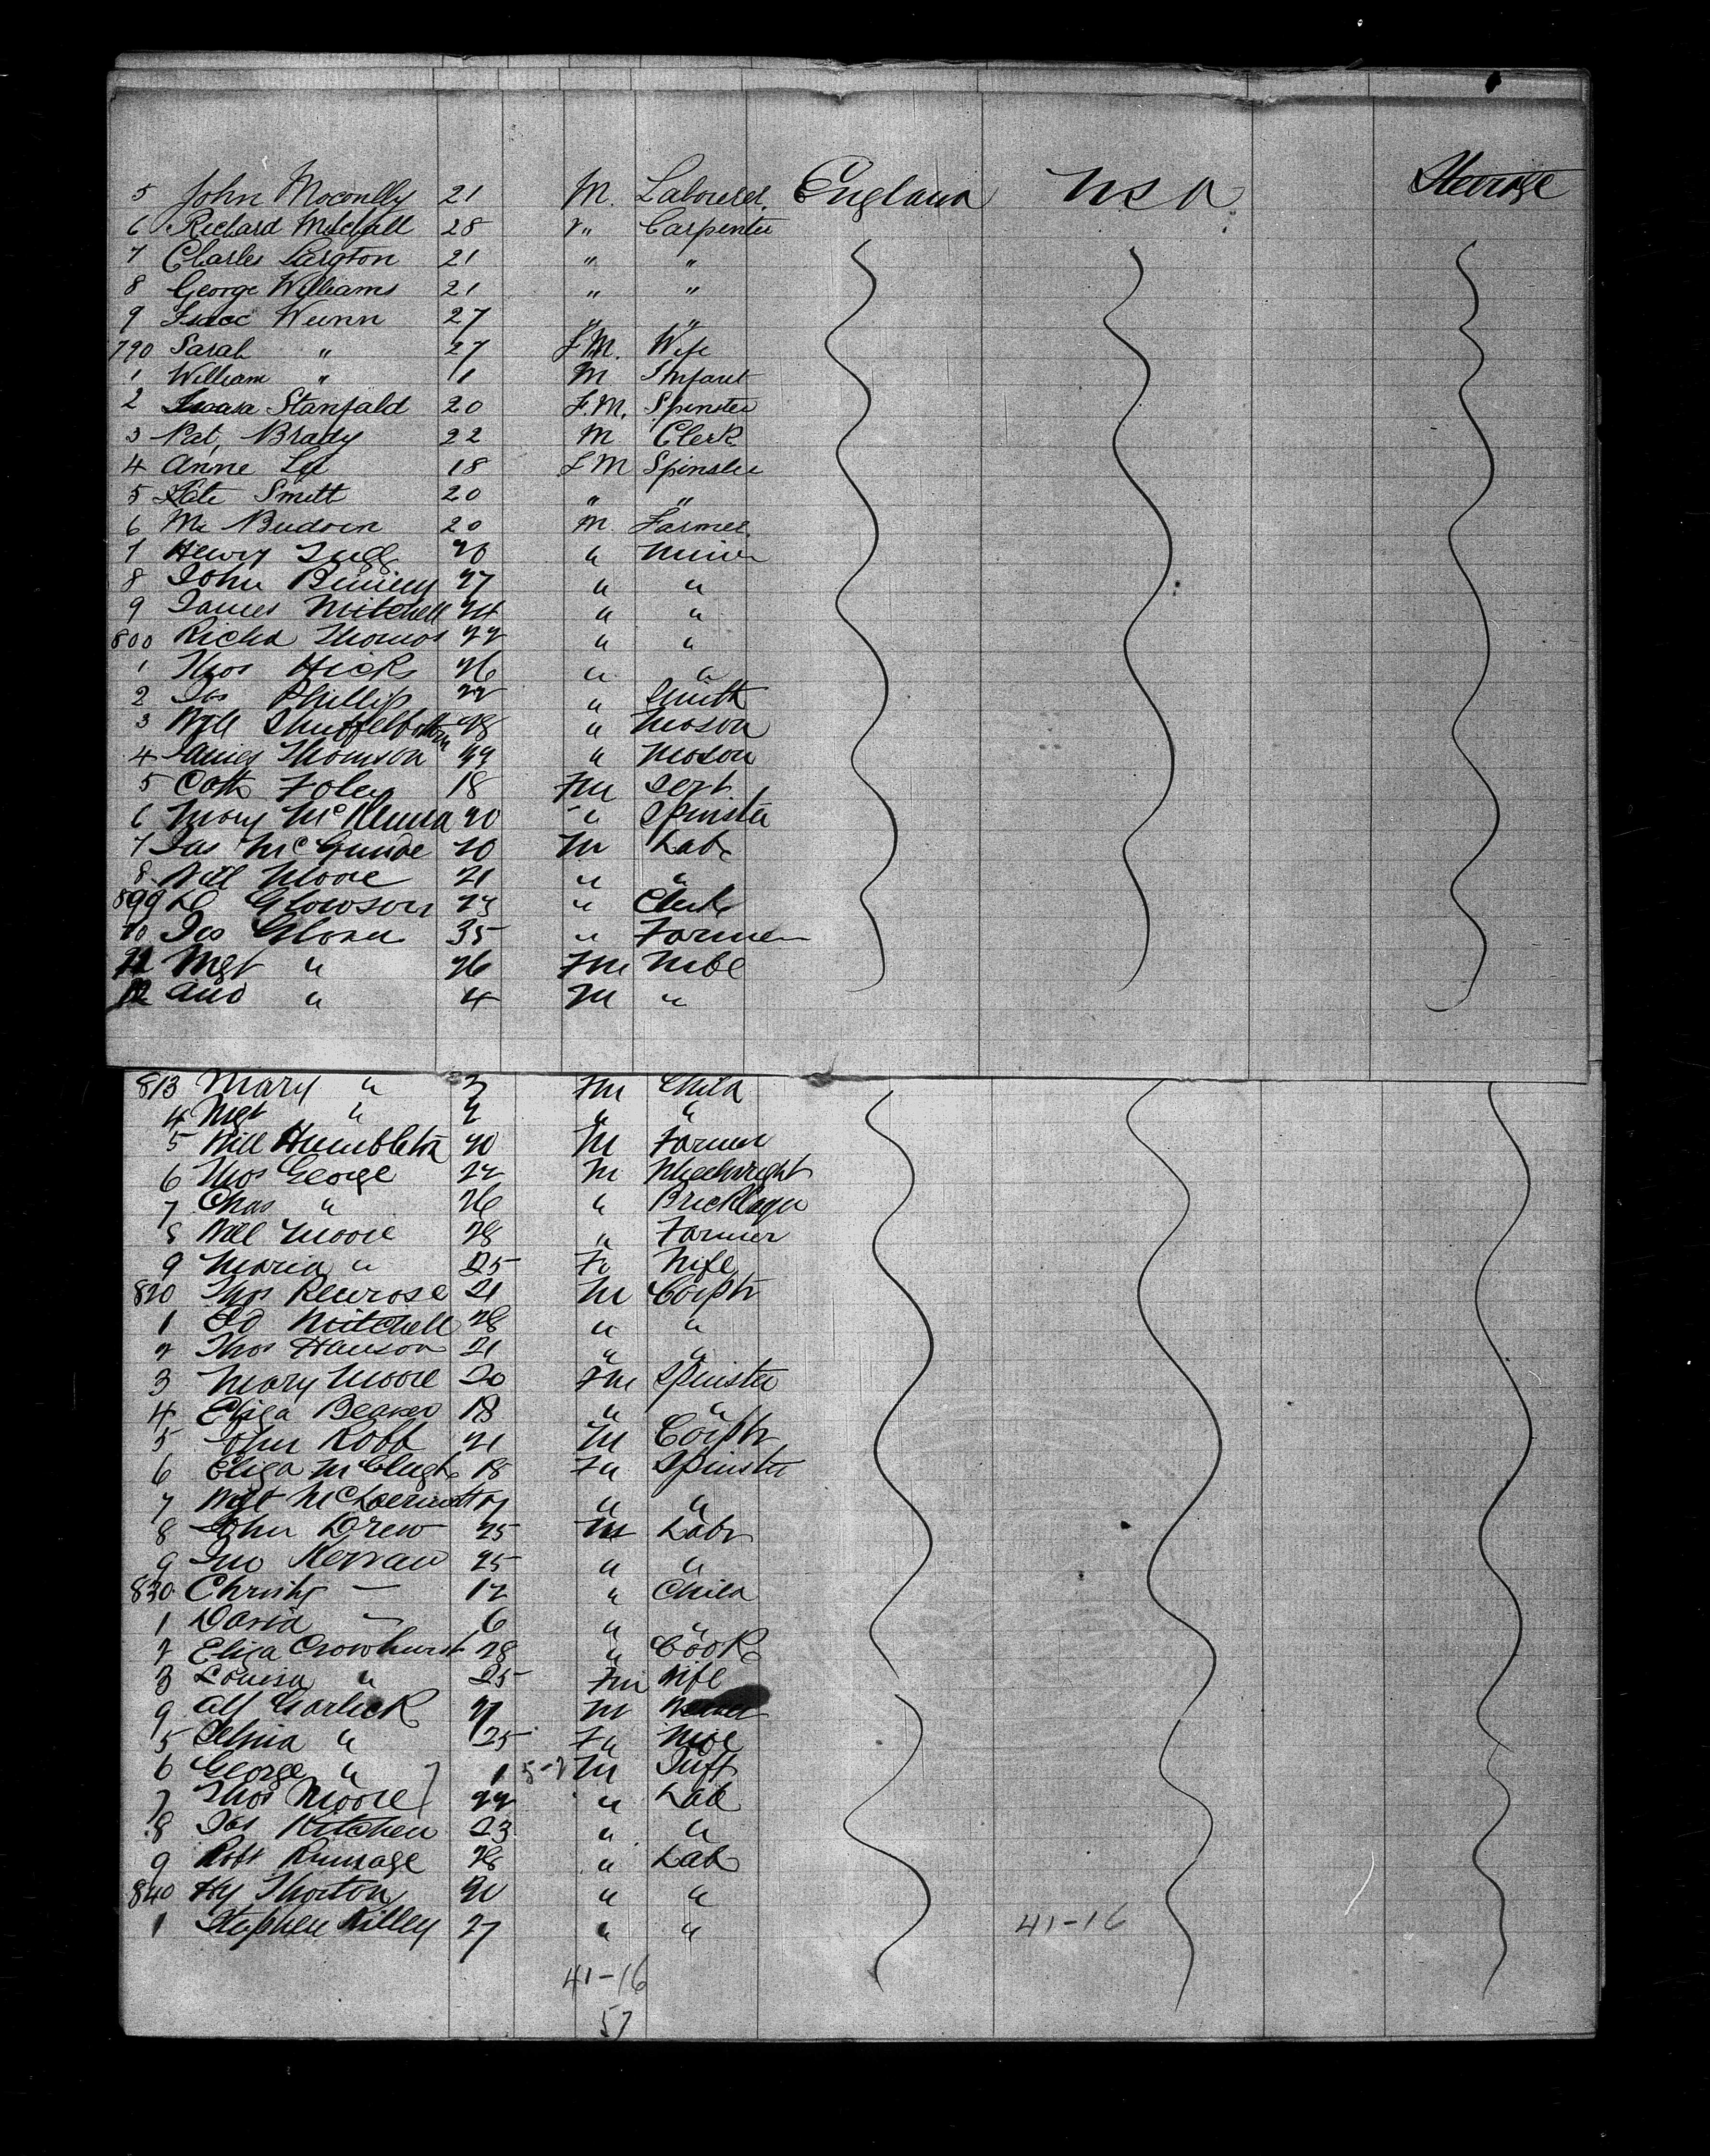 5 John Moconlly 21 M. Labourer England USA Steerage
6 Richard Mitchall 28 " Carpenter
7 Charles Largton 21 " "
8 George Williams 21 " "
9 Isaac Wunn 27 " "
790 Sarah " 27 F.M. Wife
1 William " 11 M Infant
2 Stanfald 20 F.M. Spinster
3 Pat Brady 22 M Clerk
4 Anne Lee 18 F M Spinster
5 Kate Smith 20 " "
6 Budoen 20 M. Farmer
7 Henry Tugg 20 " Miner
8 John 27 " "
9 James Mitchell 24 " "
800 Richd Thomas 22 " "
1 Thos Hicks 26 " "
2 Jas Phillip 22 " Smith
3 Will Shufflebottom 28 " Mason
4 James Thomson 22 " Mason
5 Cath Foley 18 Fm Sert
6 Mary McKenna 20 " Spinster
7 Jas 20 M Labr
8 Will Moore 21 " "
899 D Glowson 23 " Clerk
10 Jas Glover 35 " Farmer
11 Mgt " 26 Fm Wife
12 And " 4 M "
813 Mary " 3 Fm Child
4 Mgt " 2 " "
5 Will Humbleton 20 M Farmer
6 Thos George 22 M Wheelwright
7 Chas " 26 " Bricklayer
8 Will Moore 28 " Farmer
9 Maria " 25 Fm Wife
820 Thos Penrose 21 M Carptr
1 Ed Mitchell 28 " "
2 Thos Hanson 21 " "
3 Mary Moore 20 Fm Spinster
4 Eliza Beaver 18 " "
5 John Robb 21 M Carptr
6 Eliza McClught 18 Fm Spinster
7 Mgt McDermott " "
8 John Drew 25 M Labr
9 Jno Kerraw 25 " "
830 Christy — 12 " Child
1 David — 6 " "
2 Eliza Crowhurst 28 " Cook
3 Louisa " 25 Fm Wife
9 Alf Garlick 27 M
5 Selina " 25 Fm Wife
6 George " 1 M Inft
7 Thos Moore 22 " Lab
8 Jas Kitchen 23 " "
9 Robt Rumsage 28 " Lab
840 Hy Thorton 20 " "
1 Stephen Killey 27 " " 41-16
41-16
57